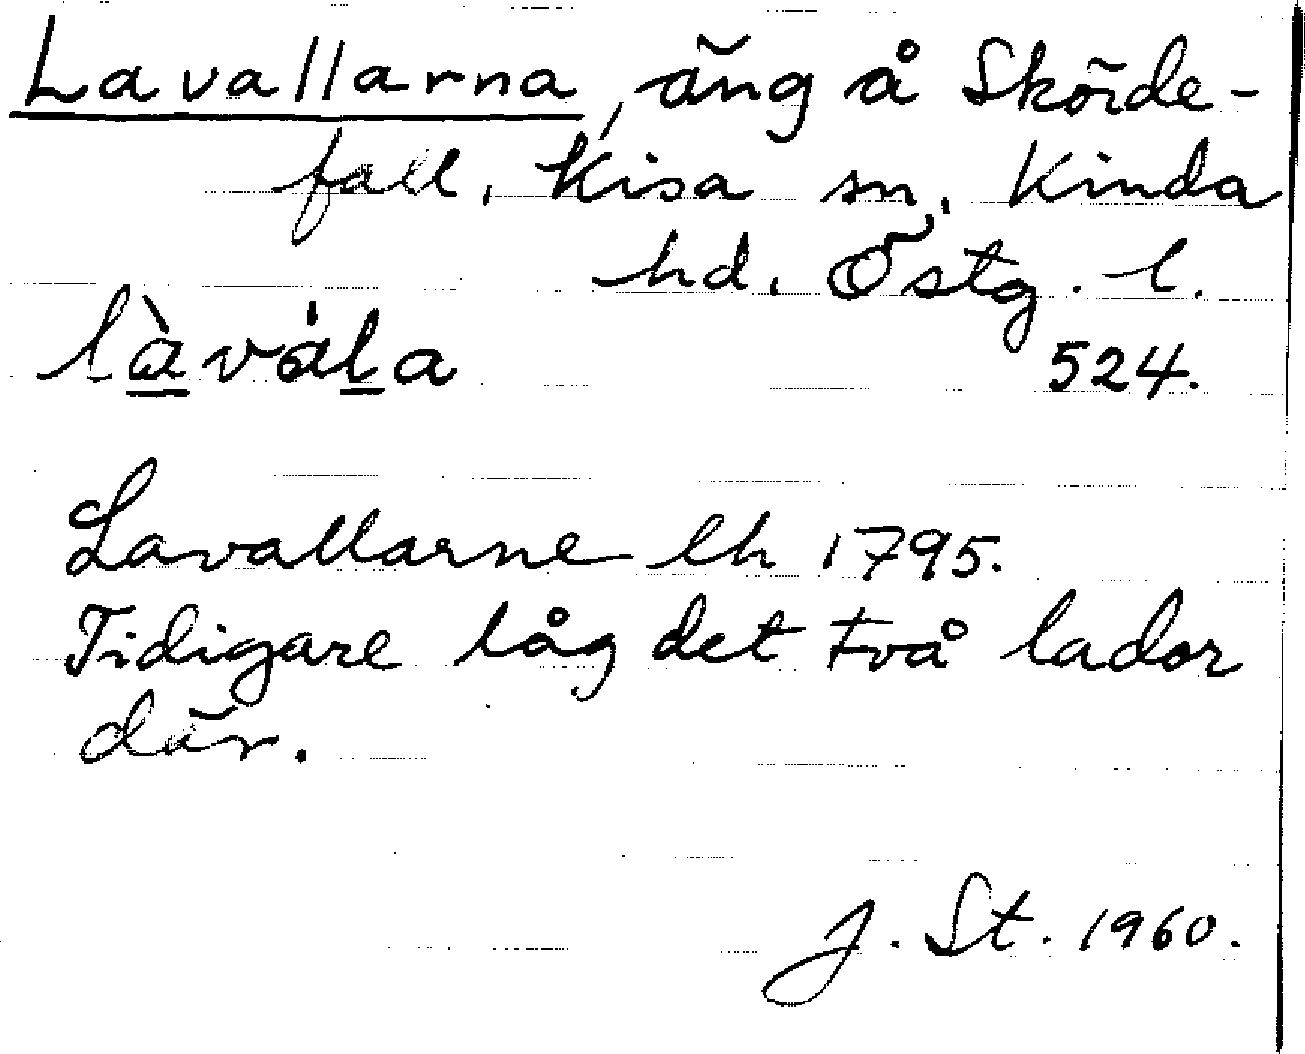 Lavallarna, äng å Skörde-
fall, Kisa sn, Kinda
hd. Östg. l.
làvála 524.
Lavallarne lh 1795.
Tidigare låg det två lador
där.
J. St. 1960.